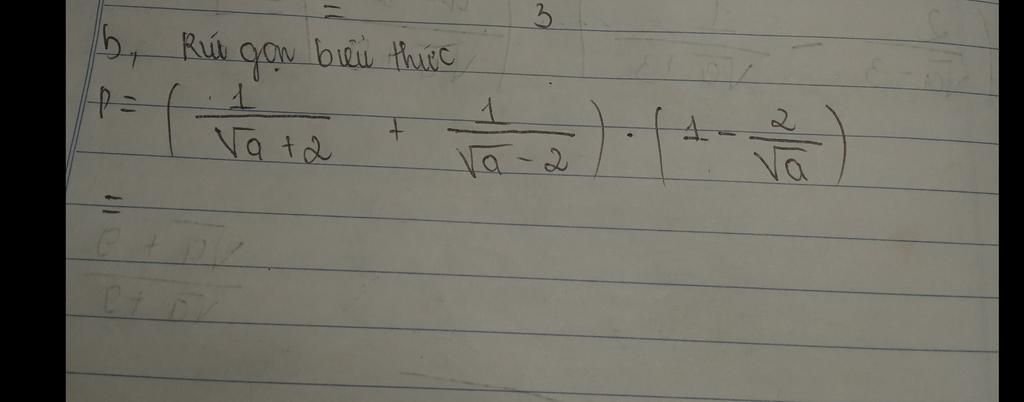 = 3
b, Rút gọn biểu thức
P = ( 1/(√a + 2) + 1/(√a - 2) ) · ( 1 - 2/√a )
=